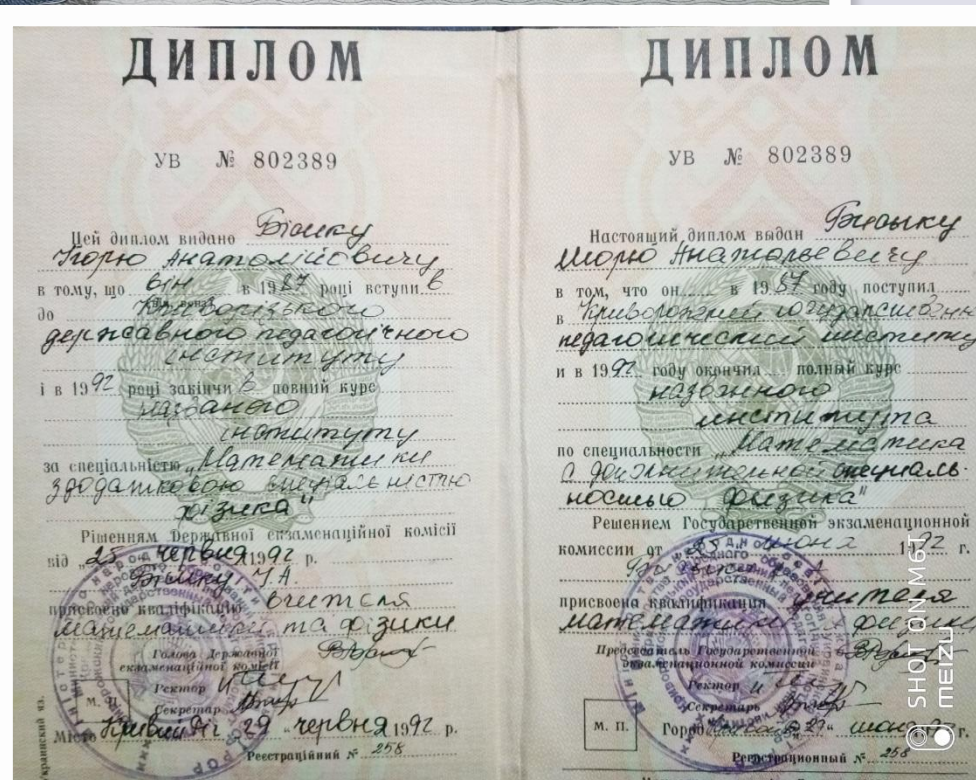 ДИПЛОМ
УВ № 802389
Цей диплом видано Бісику
Ігорю Анатолійовичу
в тому, що він в 1987 році вступив
до Криворізького
державного педагогічного
інституту
і в 1992 році закінчив повний курс
названого
інституту
за спеціальністю „Математики
з додатковою спеціальністю
фізика"
Рішенням Державної екзаменаційної комісії
від „25 червня 1992 р.
Бісику І.А.
присвоєно кваліфікацію вчителя
математики та фізики
Голова Державної
екзаменаційної комісії
Ректор
Секретар
М. П.
Місто Кривий Ріг 29 „червня 1992 р.
Реєстраційний № 258
ДИПЛОМ
УВ № 802389
Настоящий диплом выдан Бисыку
Игорю Анатольевичу
в том, что он в 1987 году поступил
в Криворожский государственный
педагогический институт
и в 1992 году окончил полный курс
названного
института
по специальности „Математика
с дополнительной специаль-
ностью физика"
Решением Государственной экзаменационной
комиссии от 25 июня 1992 г.
присвоена квалификация учителя
математики физики
Председатель Государственной
экзаменационной комиссии
Ректор
Секретарь
М. П.
Город 29 июня г.
Регистрационный № 258
SHOT ON M6T
MEIZU